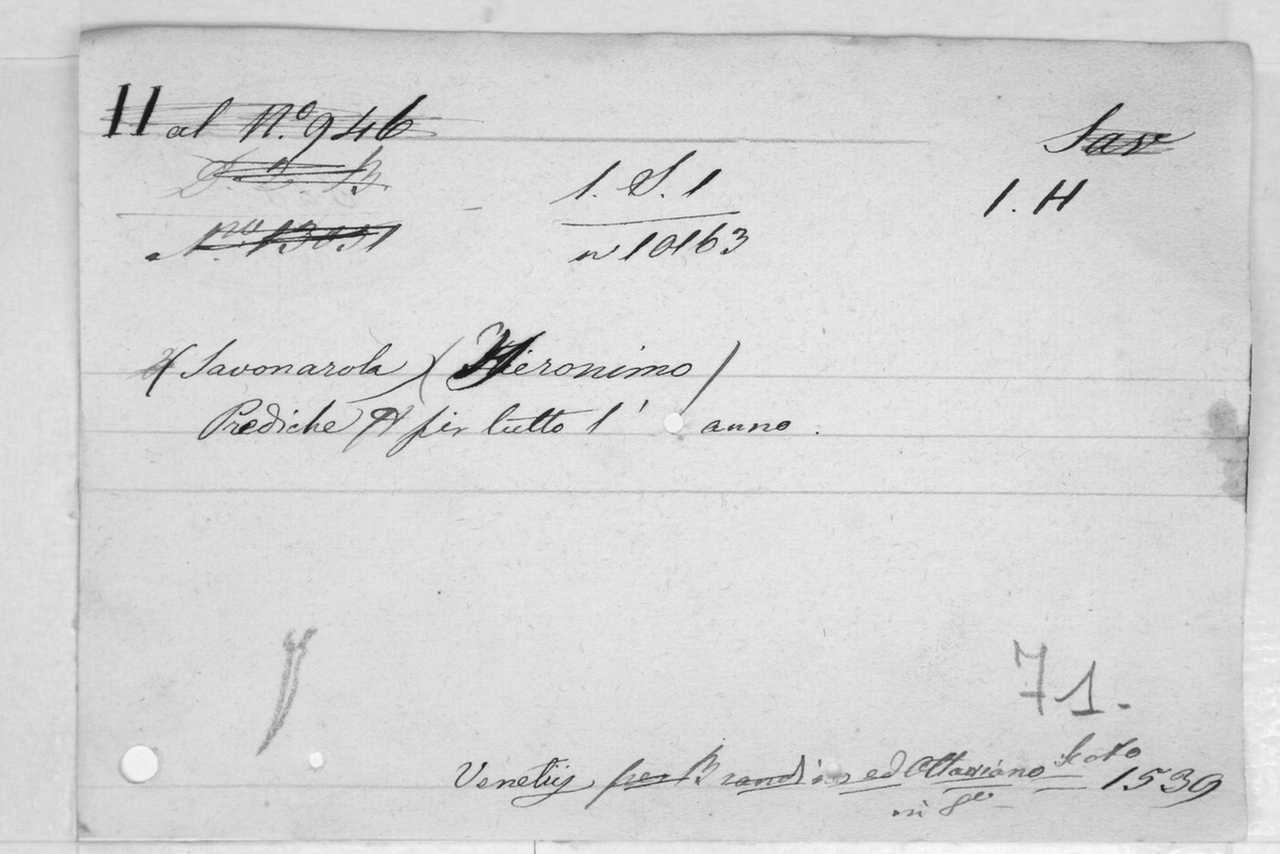 11 al N.º 946
Sav
D. 2. B.
1. S. 1
1. H
Nº. 13051
n 10163
(Savonarola) (Hieronimo)
Prediche per tutto l' anno.
71.
Venetijs per Brandino ed Ottaviano Scoto 1539
in 8º